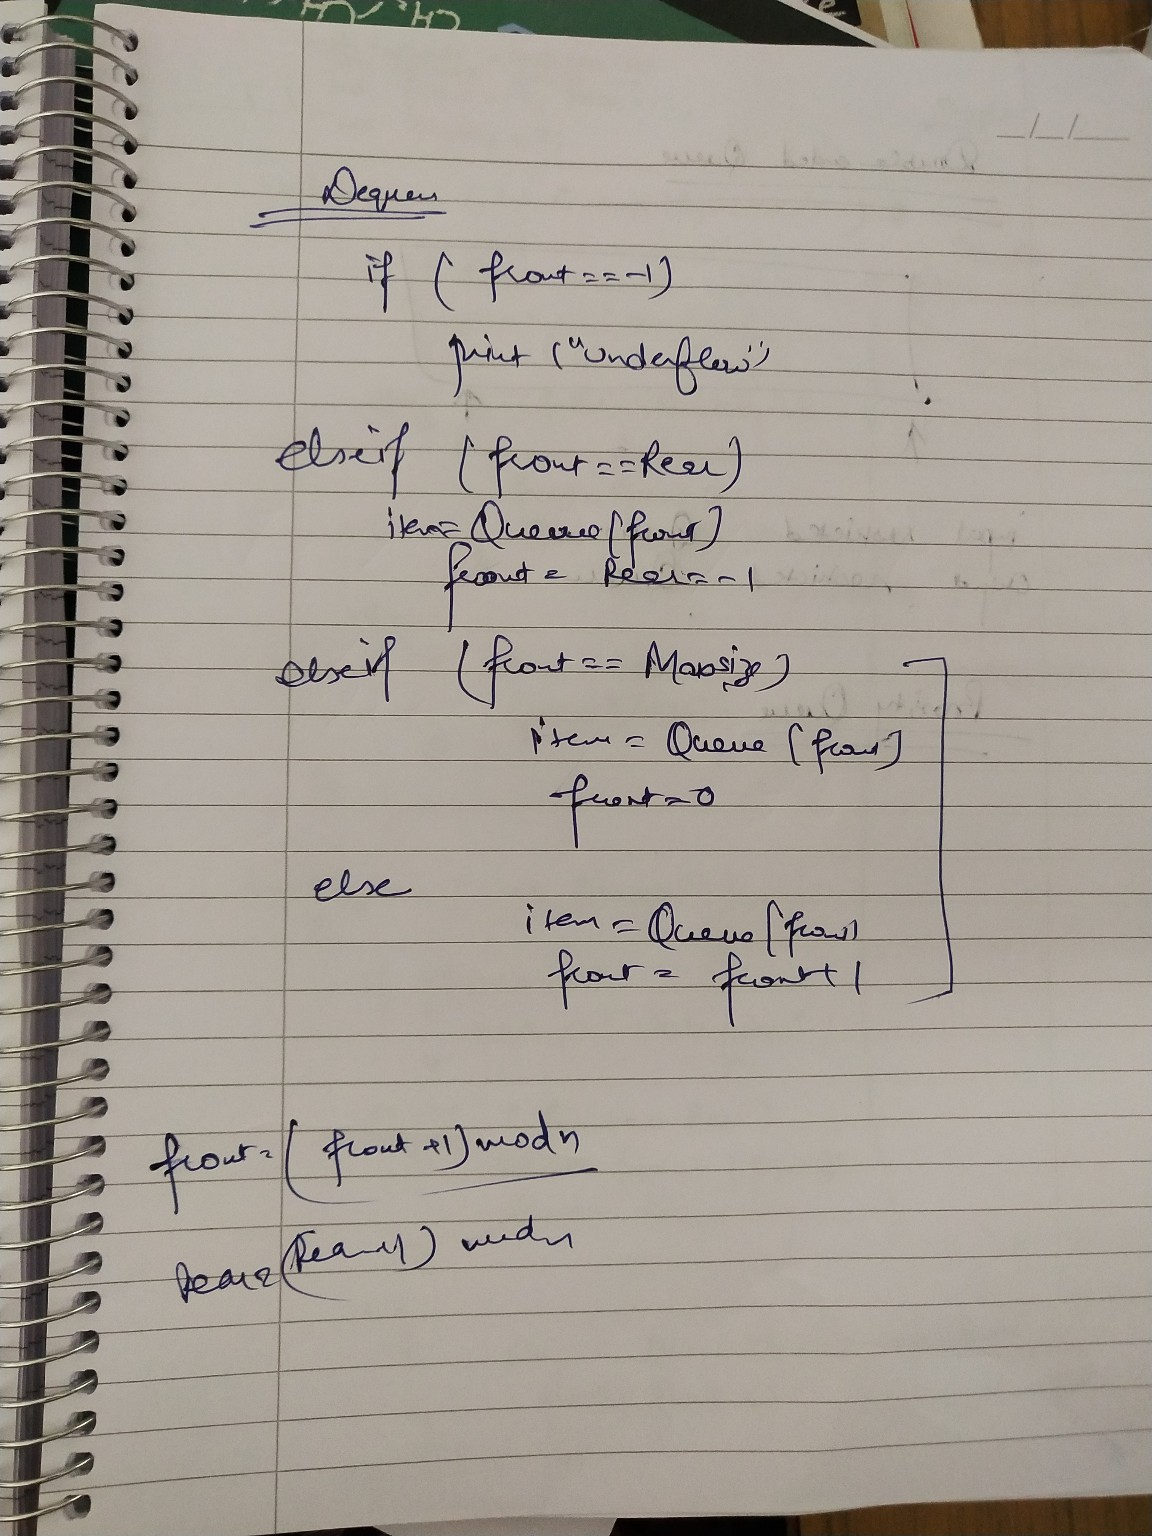 Dequeu
if ( front == -1)
print ("Underflow")
elseif ( front == Rear )
item = Queue [front]
front = Rear = -1
elseif ( front == Maxsize )
item = Queue [front]
front = 0
else
item = Queue [front]
front = front + 1
front = ( front +1) mod n
Rear = (Rear+1) mod n